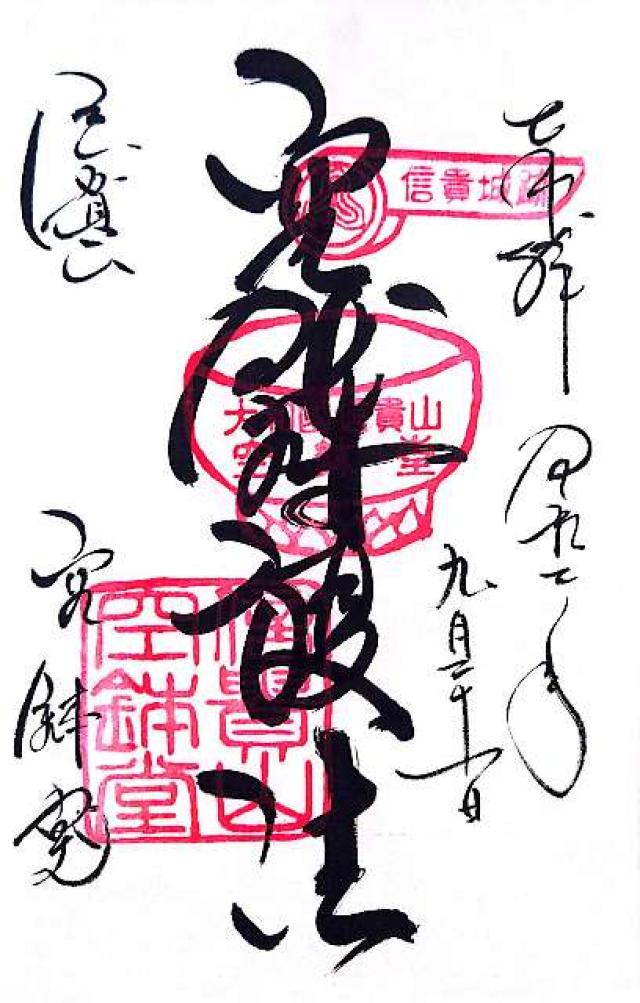 奉拝
令和二年
九月二十一日
信貴城跡
空鉢護法
信貴山
空鉢堂
信貴山
信貴山
空鉢堂